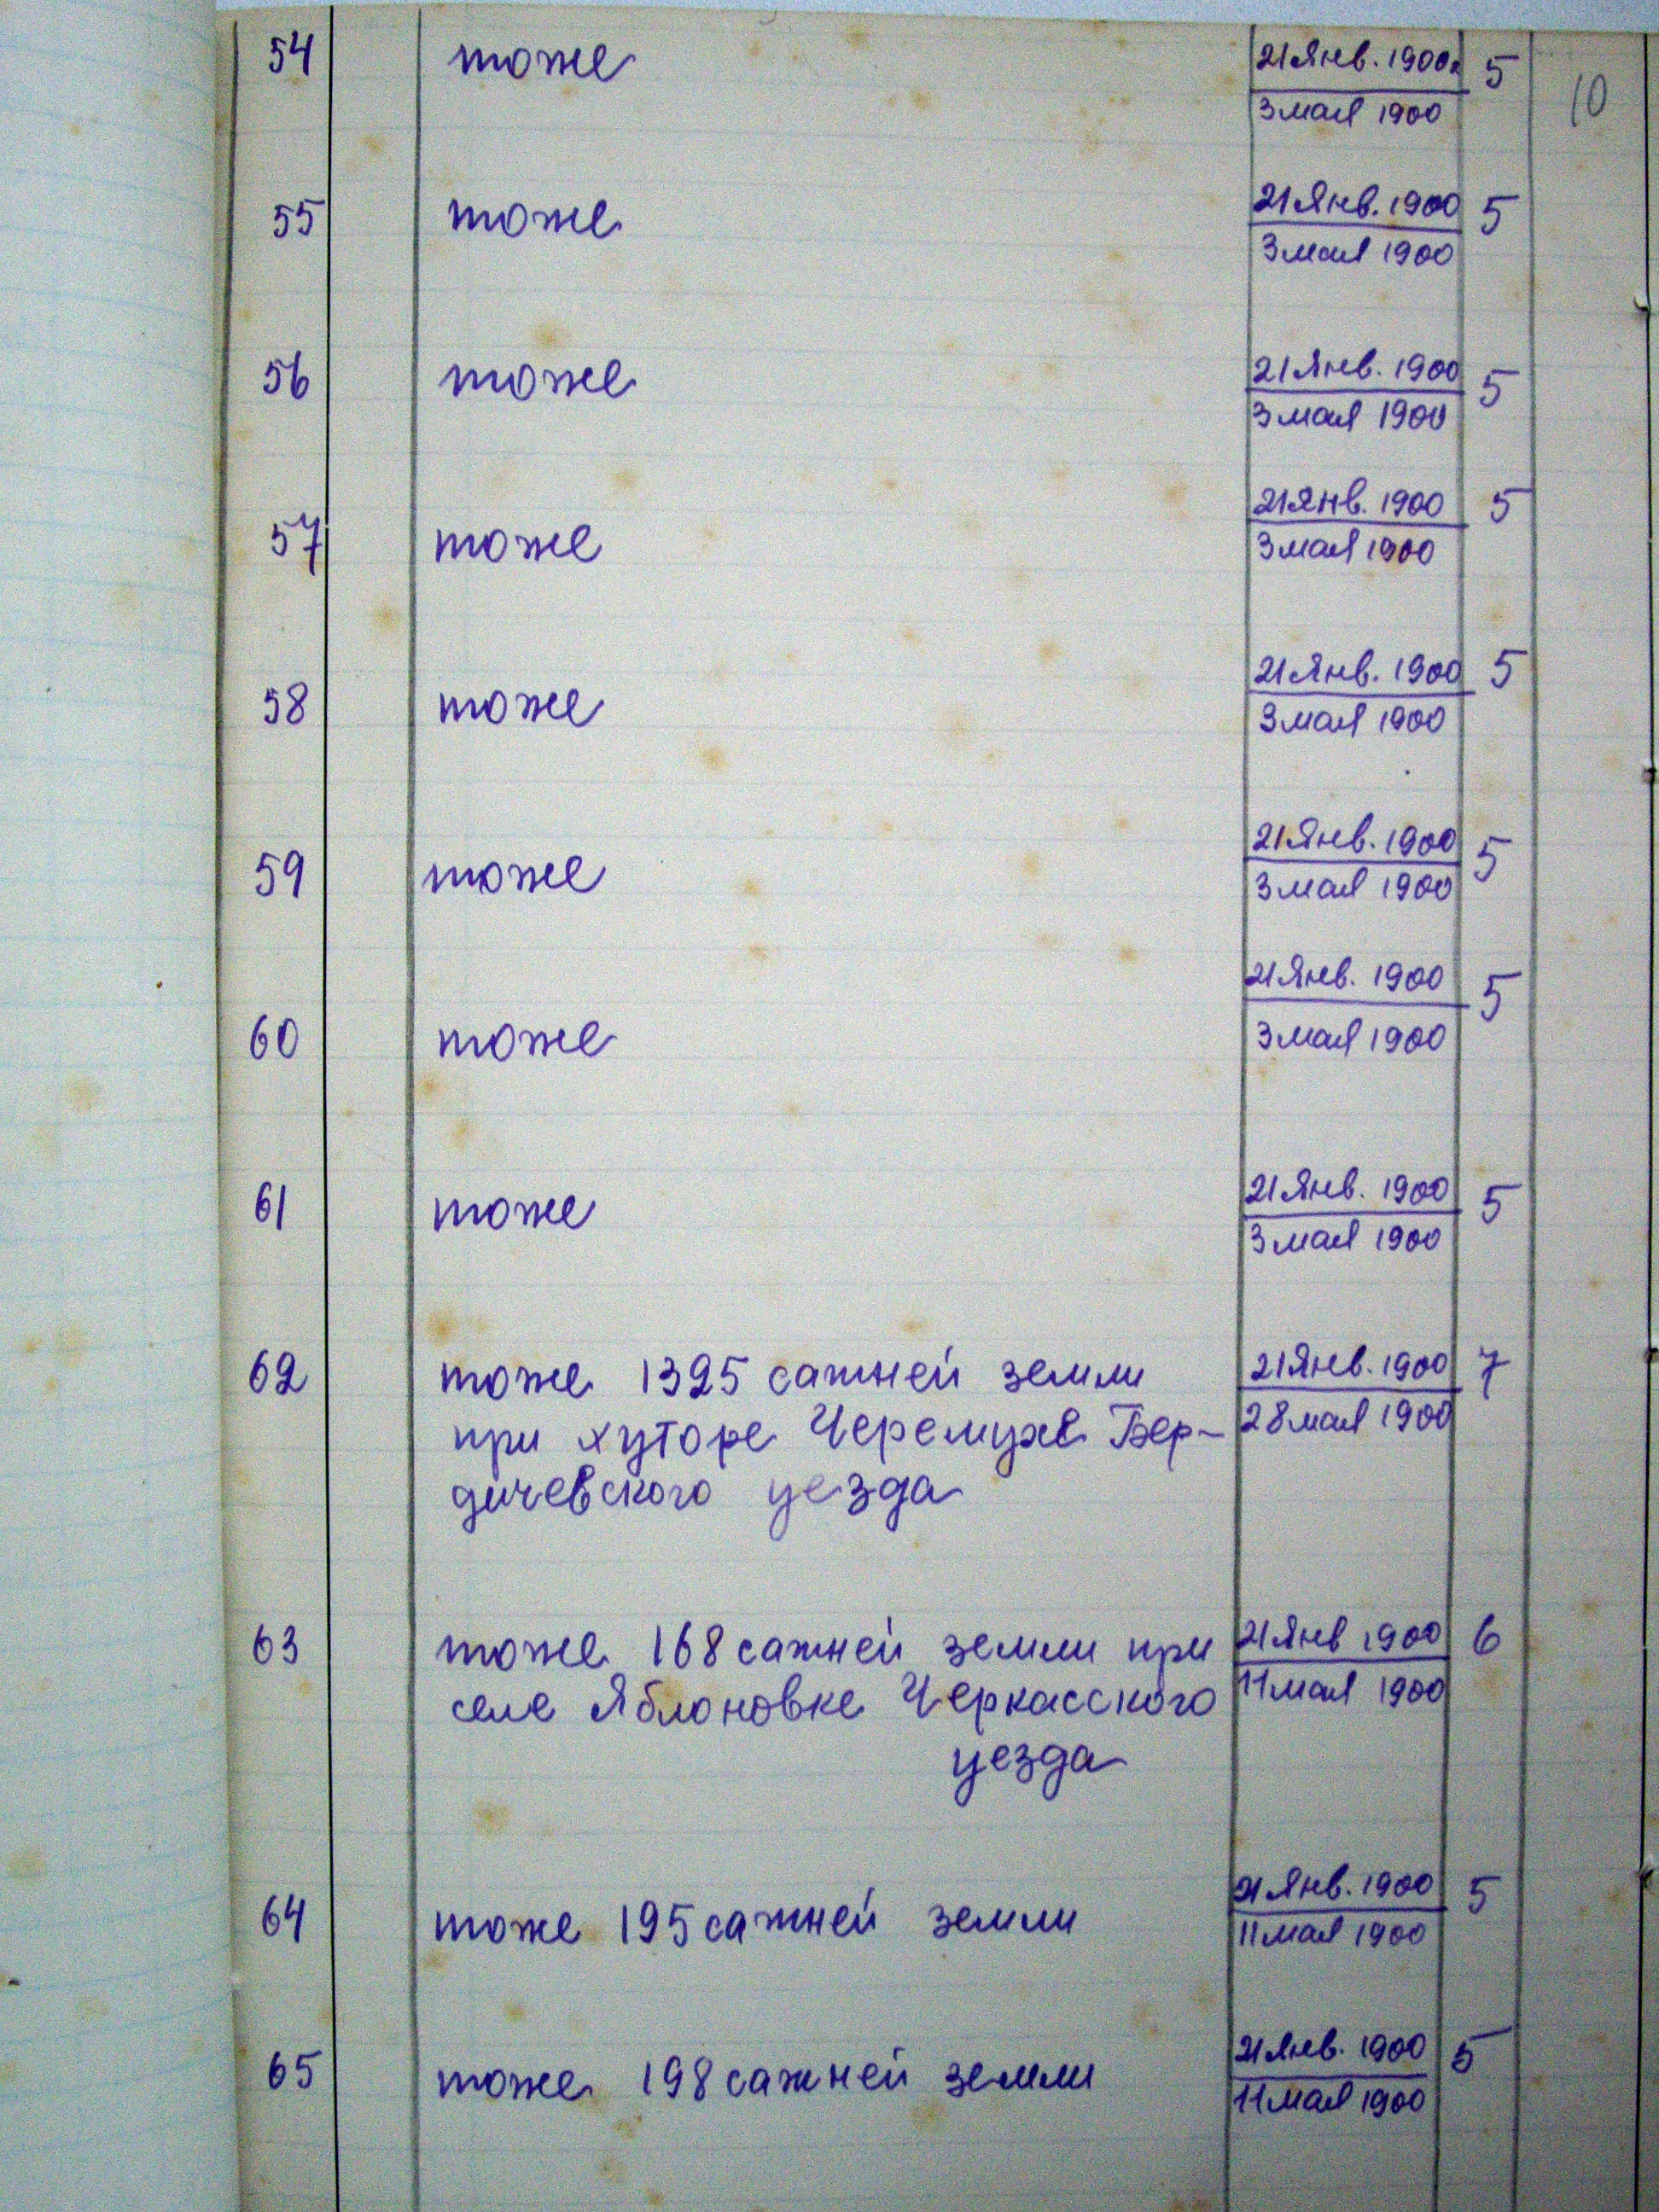 54 тоже 21 Янв. 1900г 5 10
3 мая 1900
55 тоже 21 Янв. 1900 5
3 мая 1900
56 тоже 21 Янв. 1900 5
3 мая 1900
57 тоже 21 Янв. 1900 5
3 мая 1900
58 тоже 21 Янв. 1900 5
3 мая 1900
59 тоже 21 Янв. 1900 5
3 мая 1900
60 тоже 21 Янв. 1900 5
3 мая 1900
61 тоже 21 Янв. 1900 5
3 мая 1900
62 тоже 1325 сажней земли 21 Янв. 1900 7
при хуторе Черемухе Бер- 28 мая 1900
дичевского уезда
63 тоже 168 сажней земли при 21 Янв 1900 6
селе Яблоновке Черкасского 11 мая 1900
уезда
64 тоже 195 сажней земли 21 Янв. 1900 5
11 мая 1900
65 тоже 198 сажней земли 21 Янв. 1900 5
11 мая 1900